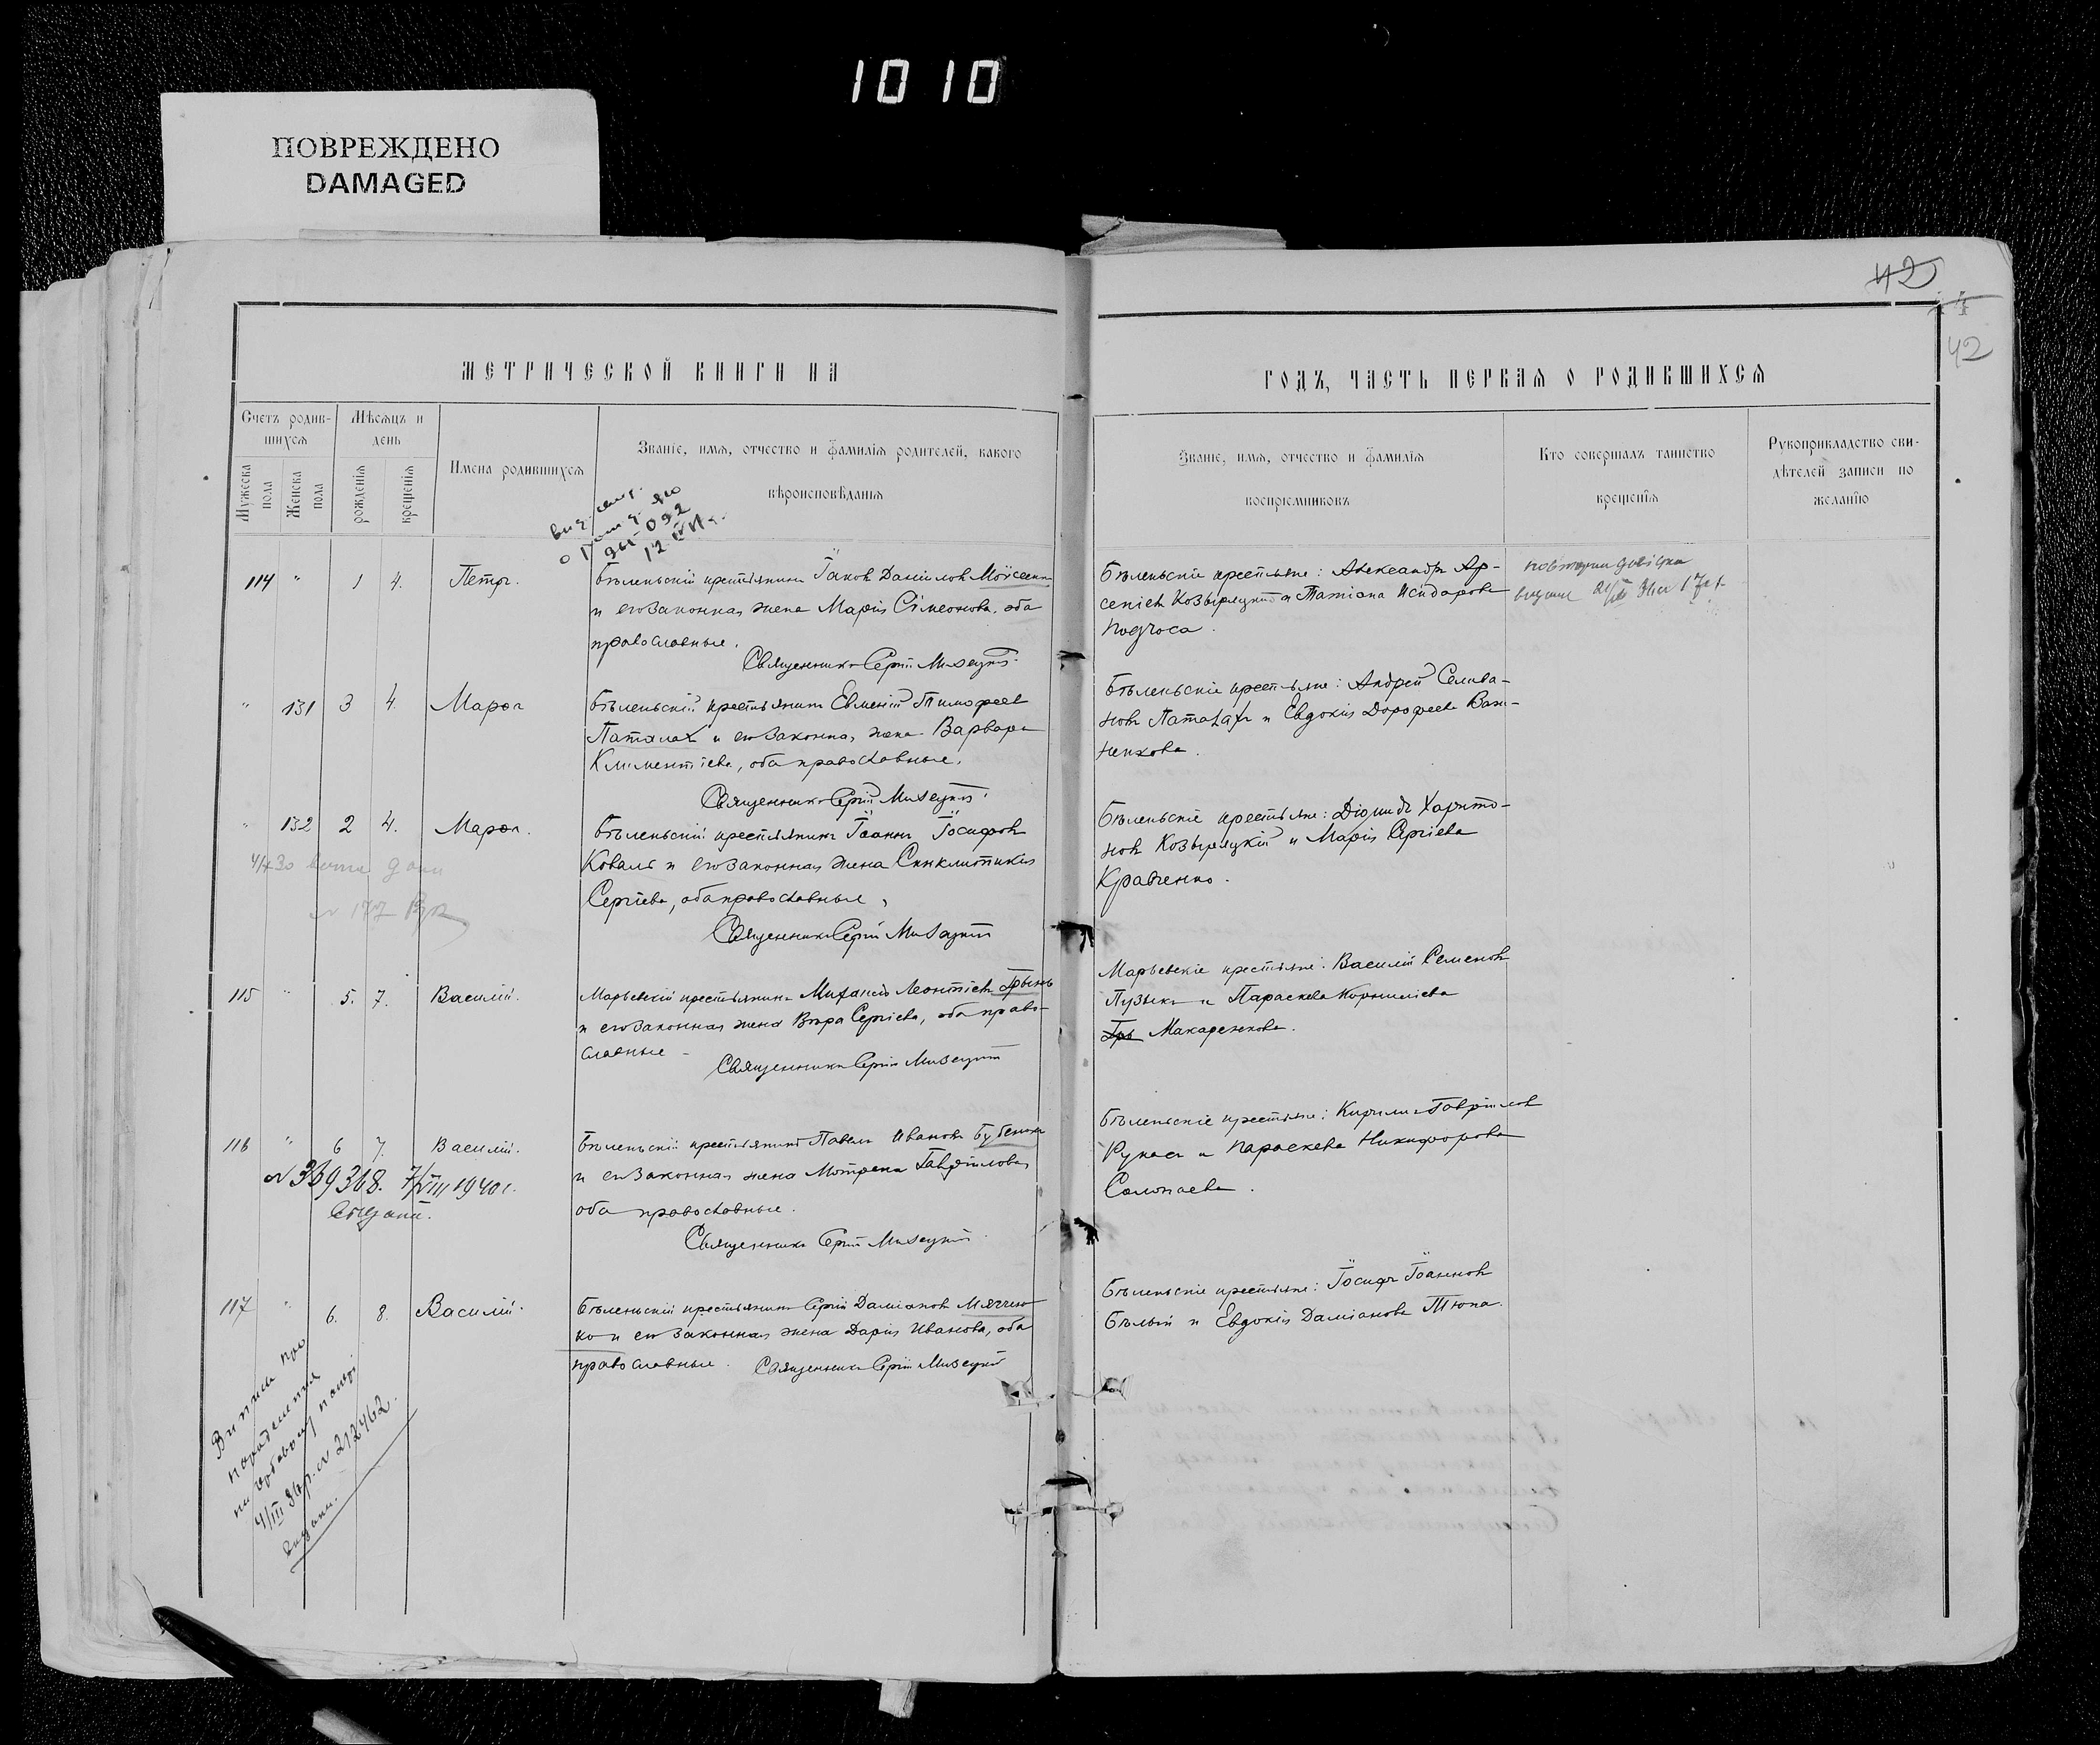 10 10
ПОВРЕЖДЕНО
DAMAGED
42
42
МЕТРИЧЕСКОЙ КНИГИ НА
ГОДЪ, ЧАСТЬ ПЕРВАЯ О РОДИВШИХСЯ
Счетъ родив-
шихся
Мужеска пола
Женска пола
Мѣсяцъ и
день
рожденія
крещенія
Имена родившихся
Званіе, имя, отчество и фамилія родителей, какого
вѣроисповѣданія
Званіе, имя, отчество и фамилія
воспріемниковъ
Кто совершалъ таинство
крещенія
Рукоприкладство сви-
дѣтелей записи по
желанію
114 " 1 4. Петръ.
Бѣленьскій крестьянинъ Іаковъ Даніиловъ Моисеенко
и его законная жена Марія Сімеонова, оба
православные.
Священникъ Сергій Мизецкій
Бѣленьскіе крестьяне: Александръ Ар-
сеніевъ Козыряцкій и Татіана Исидорова
Подчоса.
" 131 3 4. Мареа
Бѣленьскій крестьянинъ Евменій Тимофеев
и его законная жена Варвара
Климентіева, оба православные.
Священникъ Сергій Мизецкій
Бѣленьскіе крестьяне: Андрей Селива-
новъ и Евдокія Дорофеева Вани-
ненкова.
" 132 2 4. Мареа.
Бѣленьскій крестьянинъ Іоаннъ Іосифовъ
Коваль и его законная жена Синклитикія
Сергіева, оба православные,
Священникъ Сергій Мизецкій
Бѣленьскіе крестьяне: Діомидъ Харито-
новъ Козыряцкій и Марія Сергіева
Кравченко.
№ 177
115 " 5. 7. Василій.
Марьевскій крестьянинъ Михаилъ Леонтіевъ Грынь
и его законная жена Вѣра Сергіева, оба право-
славные
Священникъ Сергій Мизецкій
Марьевскіе крестьяне: Василій Семеновъ
Пузыкъ и Параскева Корниліева
Гры Макаренкова.
116 " 6 7. Василій.
№ 369368. 7/VIII 1940 г.
Бѣленьскій крестьянинъ Павелъ Ивановъ Бубенко
и его законная жена Мотрона Гавріилова,
оба православные.
Священникъ Сергій Мизецкій
Бѣленьскіе крестьяне: Кирилъ Гавріиловъ
и Параскева Никифорова
Солопаева.
117 " 6. 8. Василій.
Бѣленьскій крестьянинъ Сергій Даміановъ Мягчен-
ко и его законная жена Дарія Иванова, оба
православные. Священникъ Сергій Мизецкій
Бѣленьскіе крестьяне: Іосифъ Іоанновъ
Бѣлый и Евдокія Даміанова Тюпа.
№ 212462.